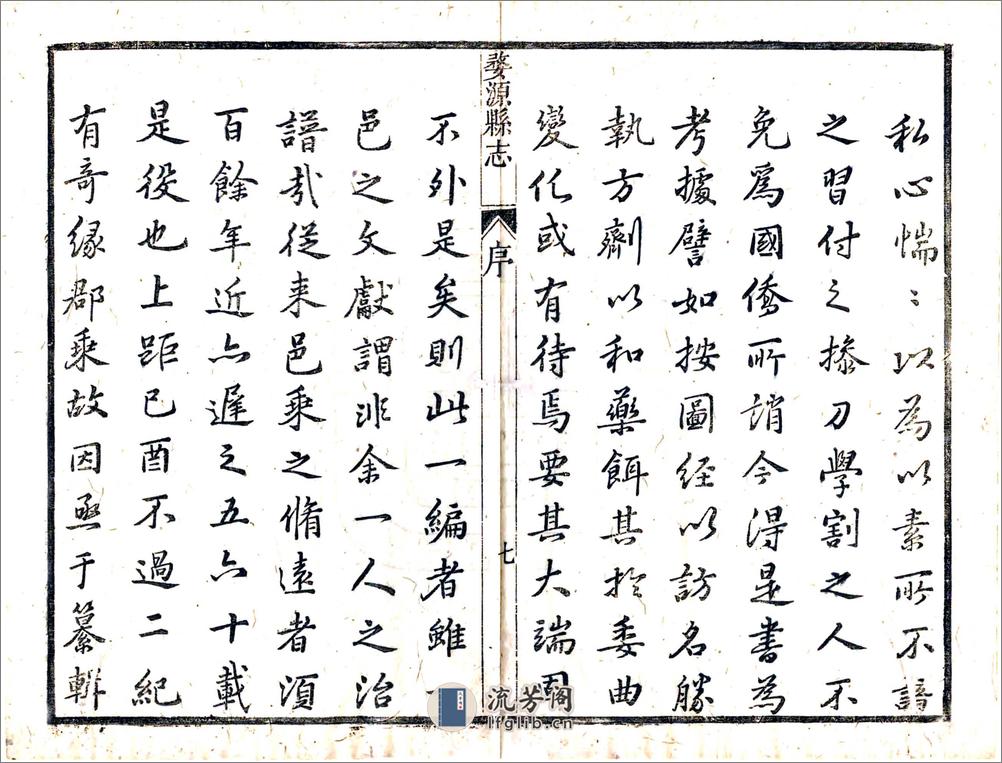 私心惴〻以為以素所不諳
之習付之摻刀學割之人不
免爲國僑所誚今得是書為
考據譬如按圖経以訪名勝
執方劑以和藥餌其扵委曲
變化或有待焉要其大端固
婺源縣志
序
七
不外是矣則此一編者雖一
邑之文獻謂非余一人之治
譜哉從来邑乘之脩遠者須
百餘年近亦遲之五六十載
是役也上距己酉不過二紀
有奇緣郡乘故因亟于纂輯
流芳阁
lfglib.cn